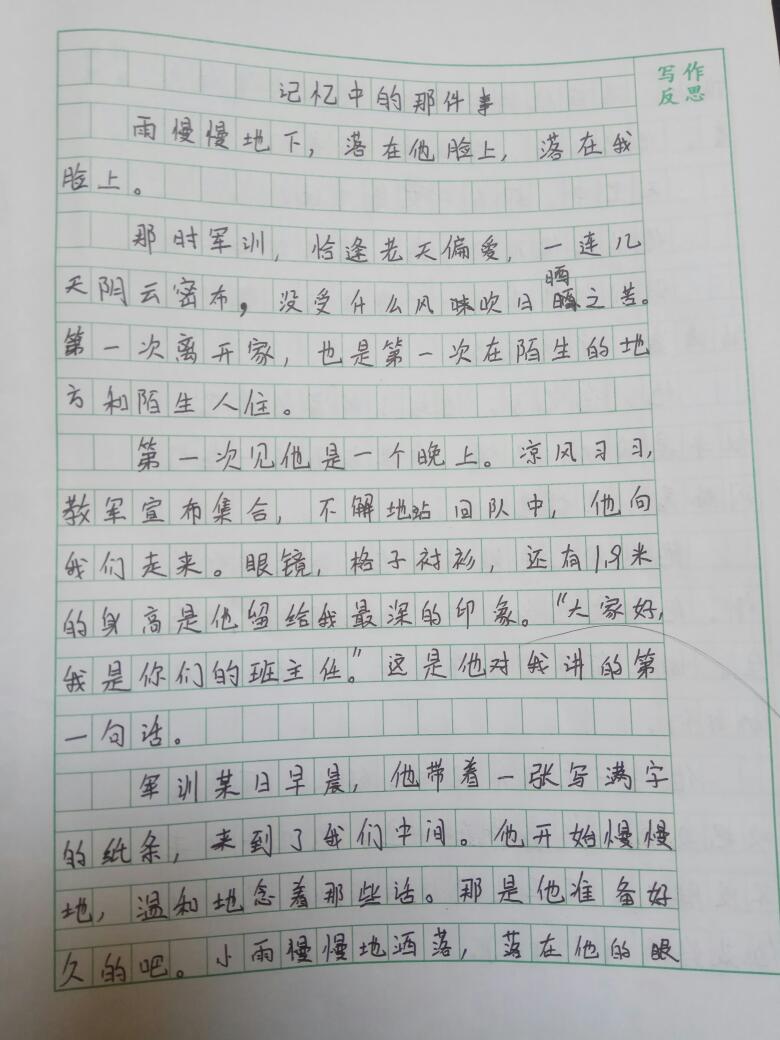 写作
反思
记忆中的那件事
雨慢慢地下，落在他脸上，落在我
脸上。
那时军训，恰逢老天偏爱，一连几
天阴云密布，没受什么风吹日晒之苦。
第一次离开家，也是第一次在陌生的地
方和陌生人住。
第一次见他是一个晚上。凉风习习，
教军宣布集合，不解地站回队中，他向
我们走来。眼镜，格子衬衫，还有1.9米
的身高是他留给我最深的印象。“大家好，
我是你们的班主任。”这是他对我讲的第
一句话。
军训某日早晨，他带着一张写满字
的纸条，来到了我们中间。他开始慢慢
地，温和地念着那些话。那是他准备好
久的吧。小雨慢慢地洒落，落在他的眼